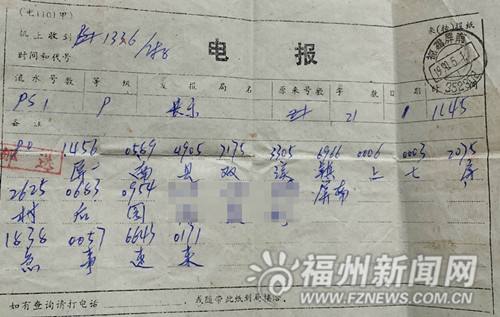 (电1101甲)
机上收到 1336/188
时间和代号
电 报
流水号数 等级 发报局名 原来号数 字数 日期 时
PS1 P 长乐 21 1 1145
备注
1456 0589 4905 7175 3305 6966 0006 0003 2075
屏 南 县 双 溪 镇 上 七 屏
2625 0683 0954 屏南
村 右 国
1838 0057 6643 0171
急 事 速 来
如有查询请打电话 ,或随带此纸到局接洽。
福州新闻网
WWW.FZNEWS.COM.CN